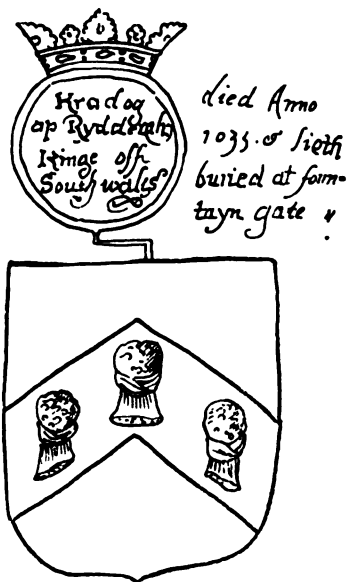 Kradog
ap Rydderch
Kinge off
South walls
died Anno
1035. & lieth
buried at foun-
tayn gate